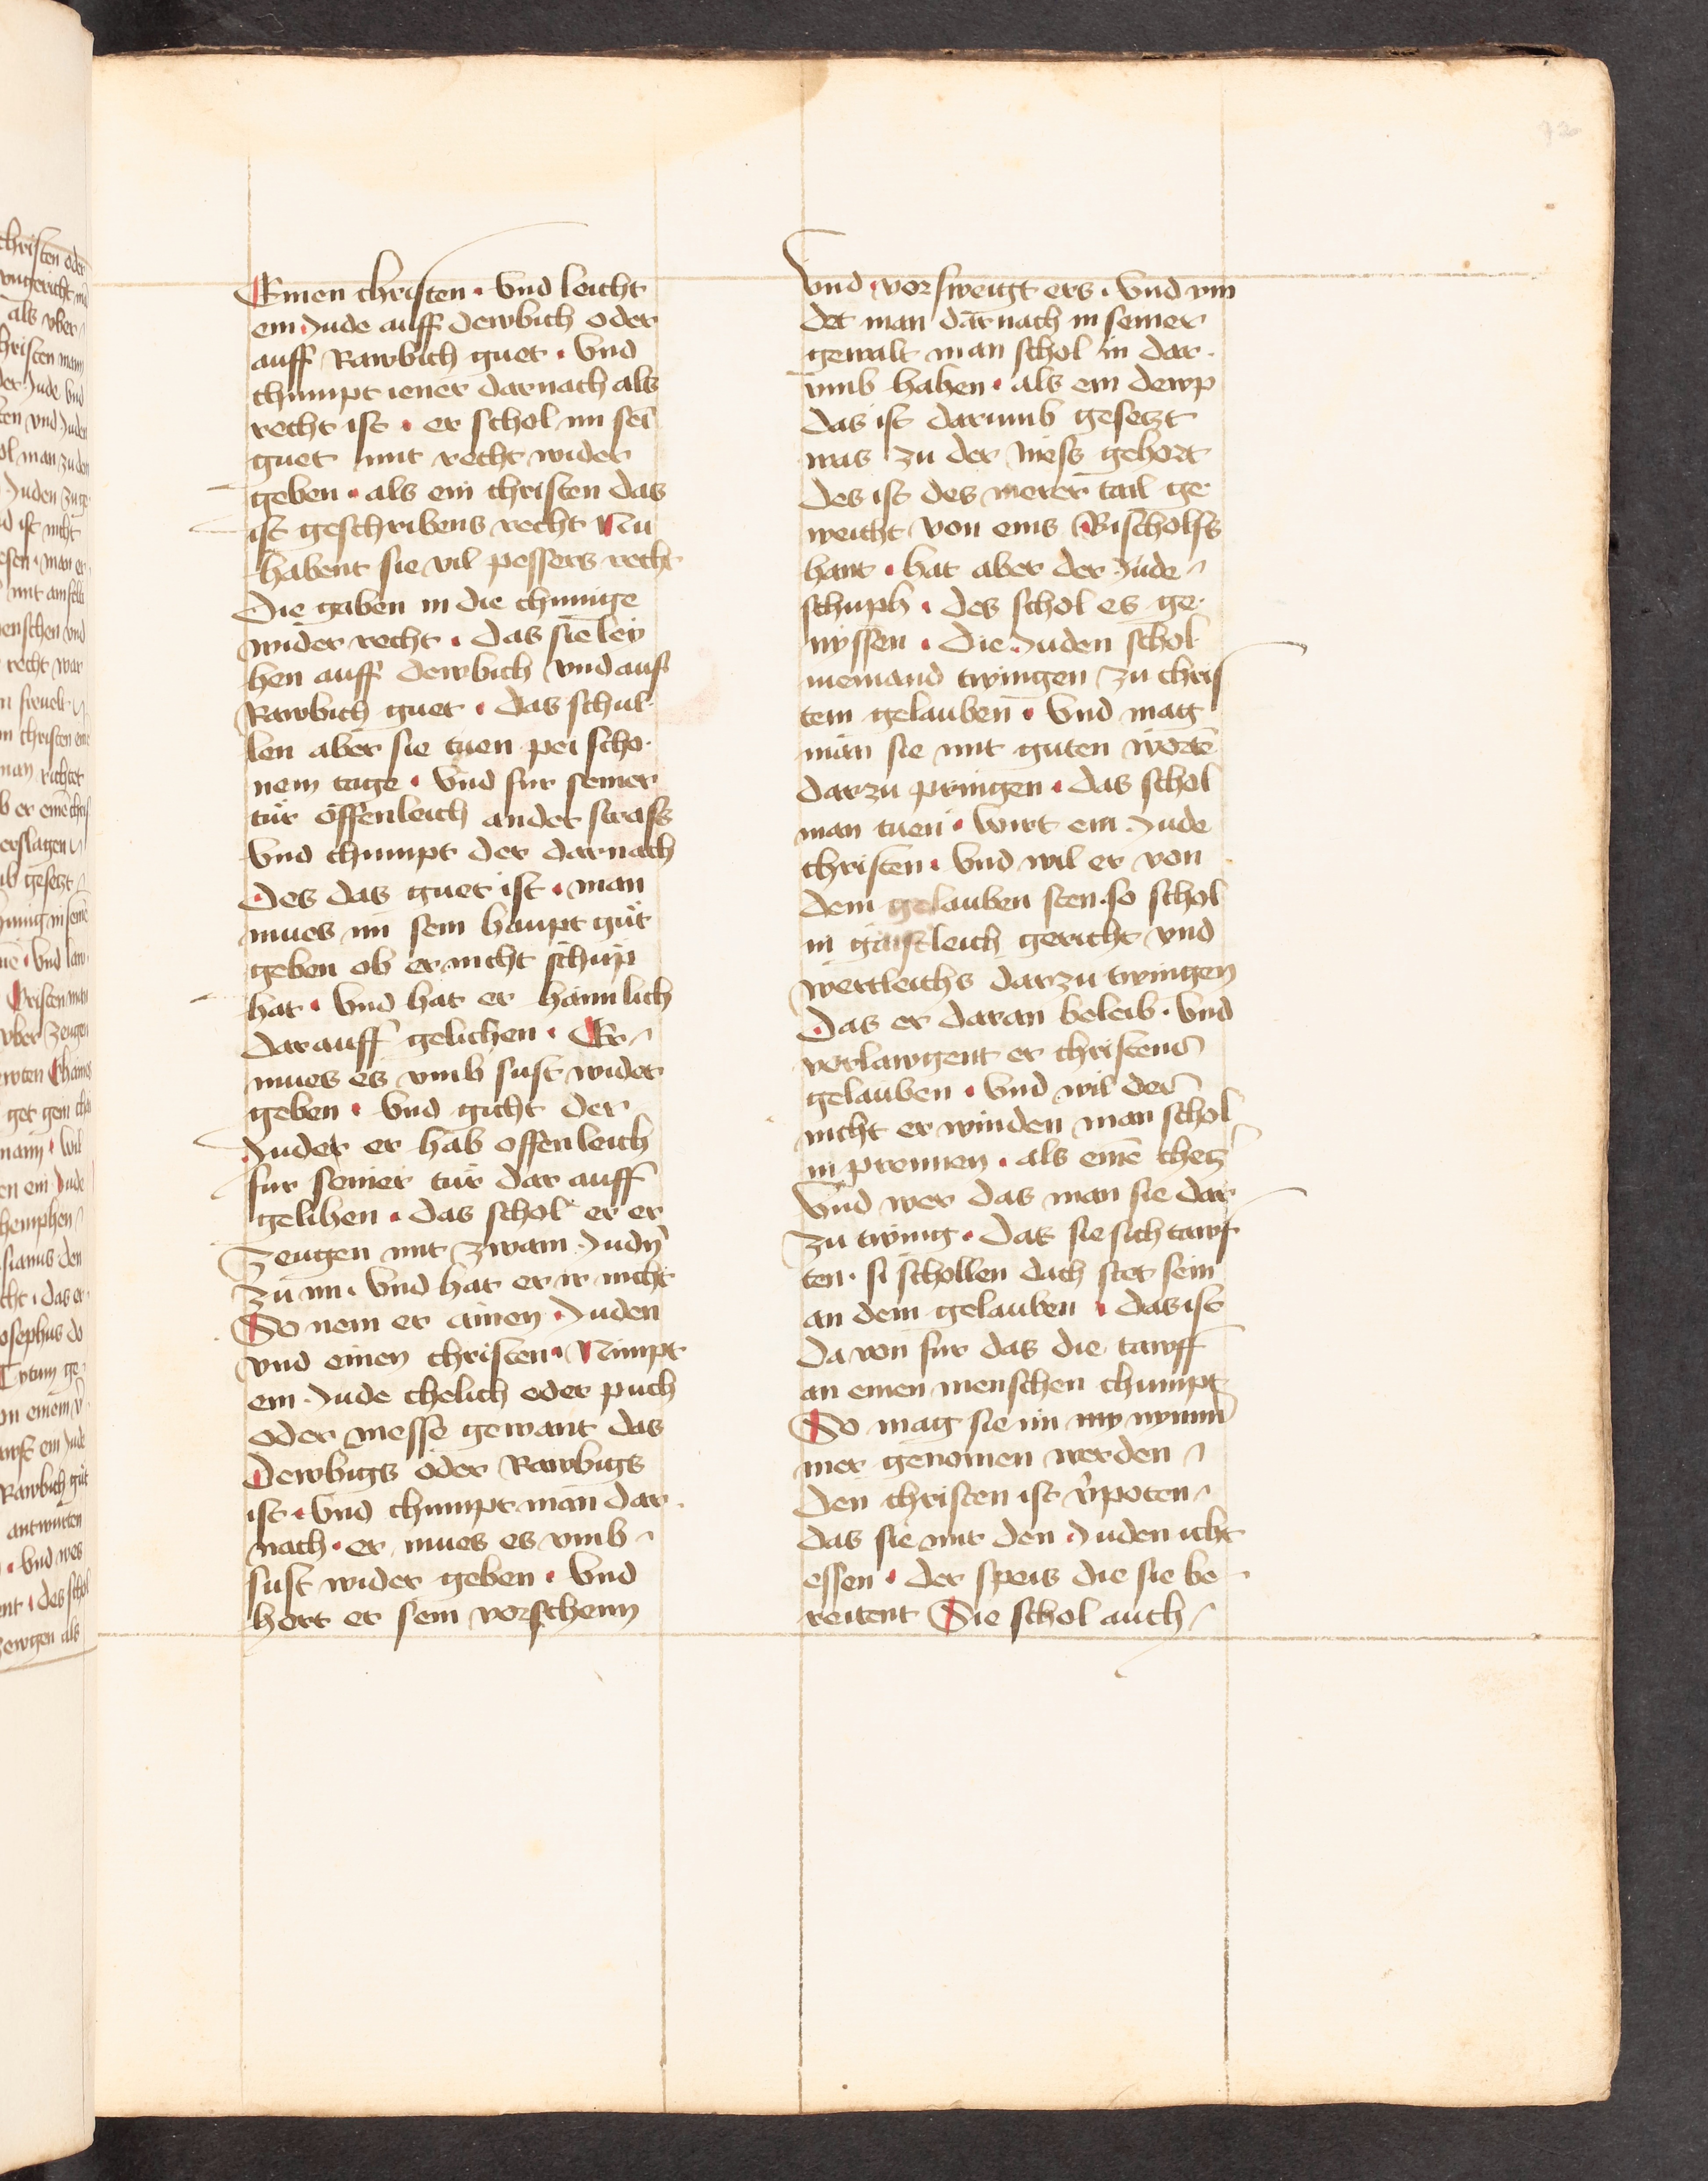 Einen christen · Vnd leicht
ein Jude auff dewbich oder
auff Rawbich guet · Vnd
chumpt iener darnach als
recht ist · er schol im sei
guet mit recht wider
geben · als ein christen das
ist geschribens recht Nu
habent sie vil pessers recht
Die gaben in die chunige
wider recht · das sie ley
hen auff dewbich vnd auf
Rawbich guet · das schul
len aber sie tuen pei scho
nem tage · Vnd fur seiner
tür öffenleich an der strass
Vnd chumpt der darnach
Des das guet ist · man
mues im sein haupt gůt
geben ob er nicht schup
hat · Vnd hat er haimlich
dar auff gelichen · Er
mues es vmb sust wider
geben · Vnd gicht der
Juder er hab offenleich
fur seiner tür dar auff
gelihen · das schol er er
zeugen mit zwain Judn̄
zu im · Vnd hat er ir nicht
So nem er ainen Juden
vnd einen christen · Nimpt
ein Jude chelich oder puch
oder messe gewant das
Dewbigs oder Rawbigs
ist · Vnd chumpt man dar
nach · er mues es vmb
sust wider geben · Vnd
hort er sein vorschenn
Vnd vorsweigt ers · Vnd vin
det man darnach in seiner
gewalt man schol in dar
vmb haben · als ein dewp
das ist darumb gesetzt
was zu der mess gehort
des ist des merer tail ge
weicht von eins Bischolfs
hant · hat aber der Jude
schuph · des schol es ge
nyssen · Die Juden schol
niemand twingen zu chris
tem gelauben · Vnd mag
man sie mit guten worte
darzu pringen · das schol
man tuen · Wirt ein Jude
christen · Vnd wil er von
dem gelauben sten · so schol
in gaistleich gericht vnd
wertleichs darzu twingen
Das er daran beleib · Vnd
vorlawgent er christens
gelauben · Vnd wil der
nicht erwinden man schol
in prennen · als eine chetz
Vnd wer das man sie dar
zu twing · Das sie sich tawf
ten · si schollen dach stet sein
an dem gelauben · das ist
Da von fur das die tawff
an einen menschen chumpt
So mag sie im ny nymm
mer genomen werden
Den christen ist v̓poten
das sie mit den Juden icht
essen · der speis die sie be
reitent Sie schol auch